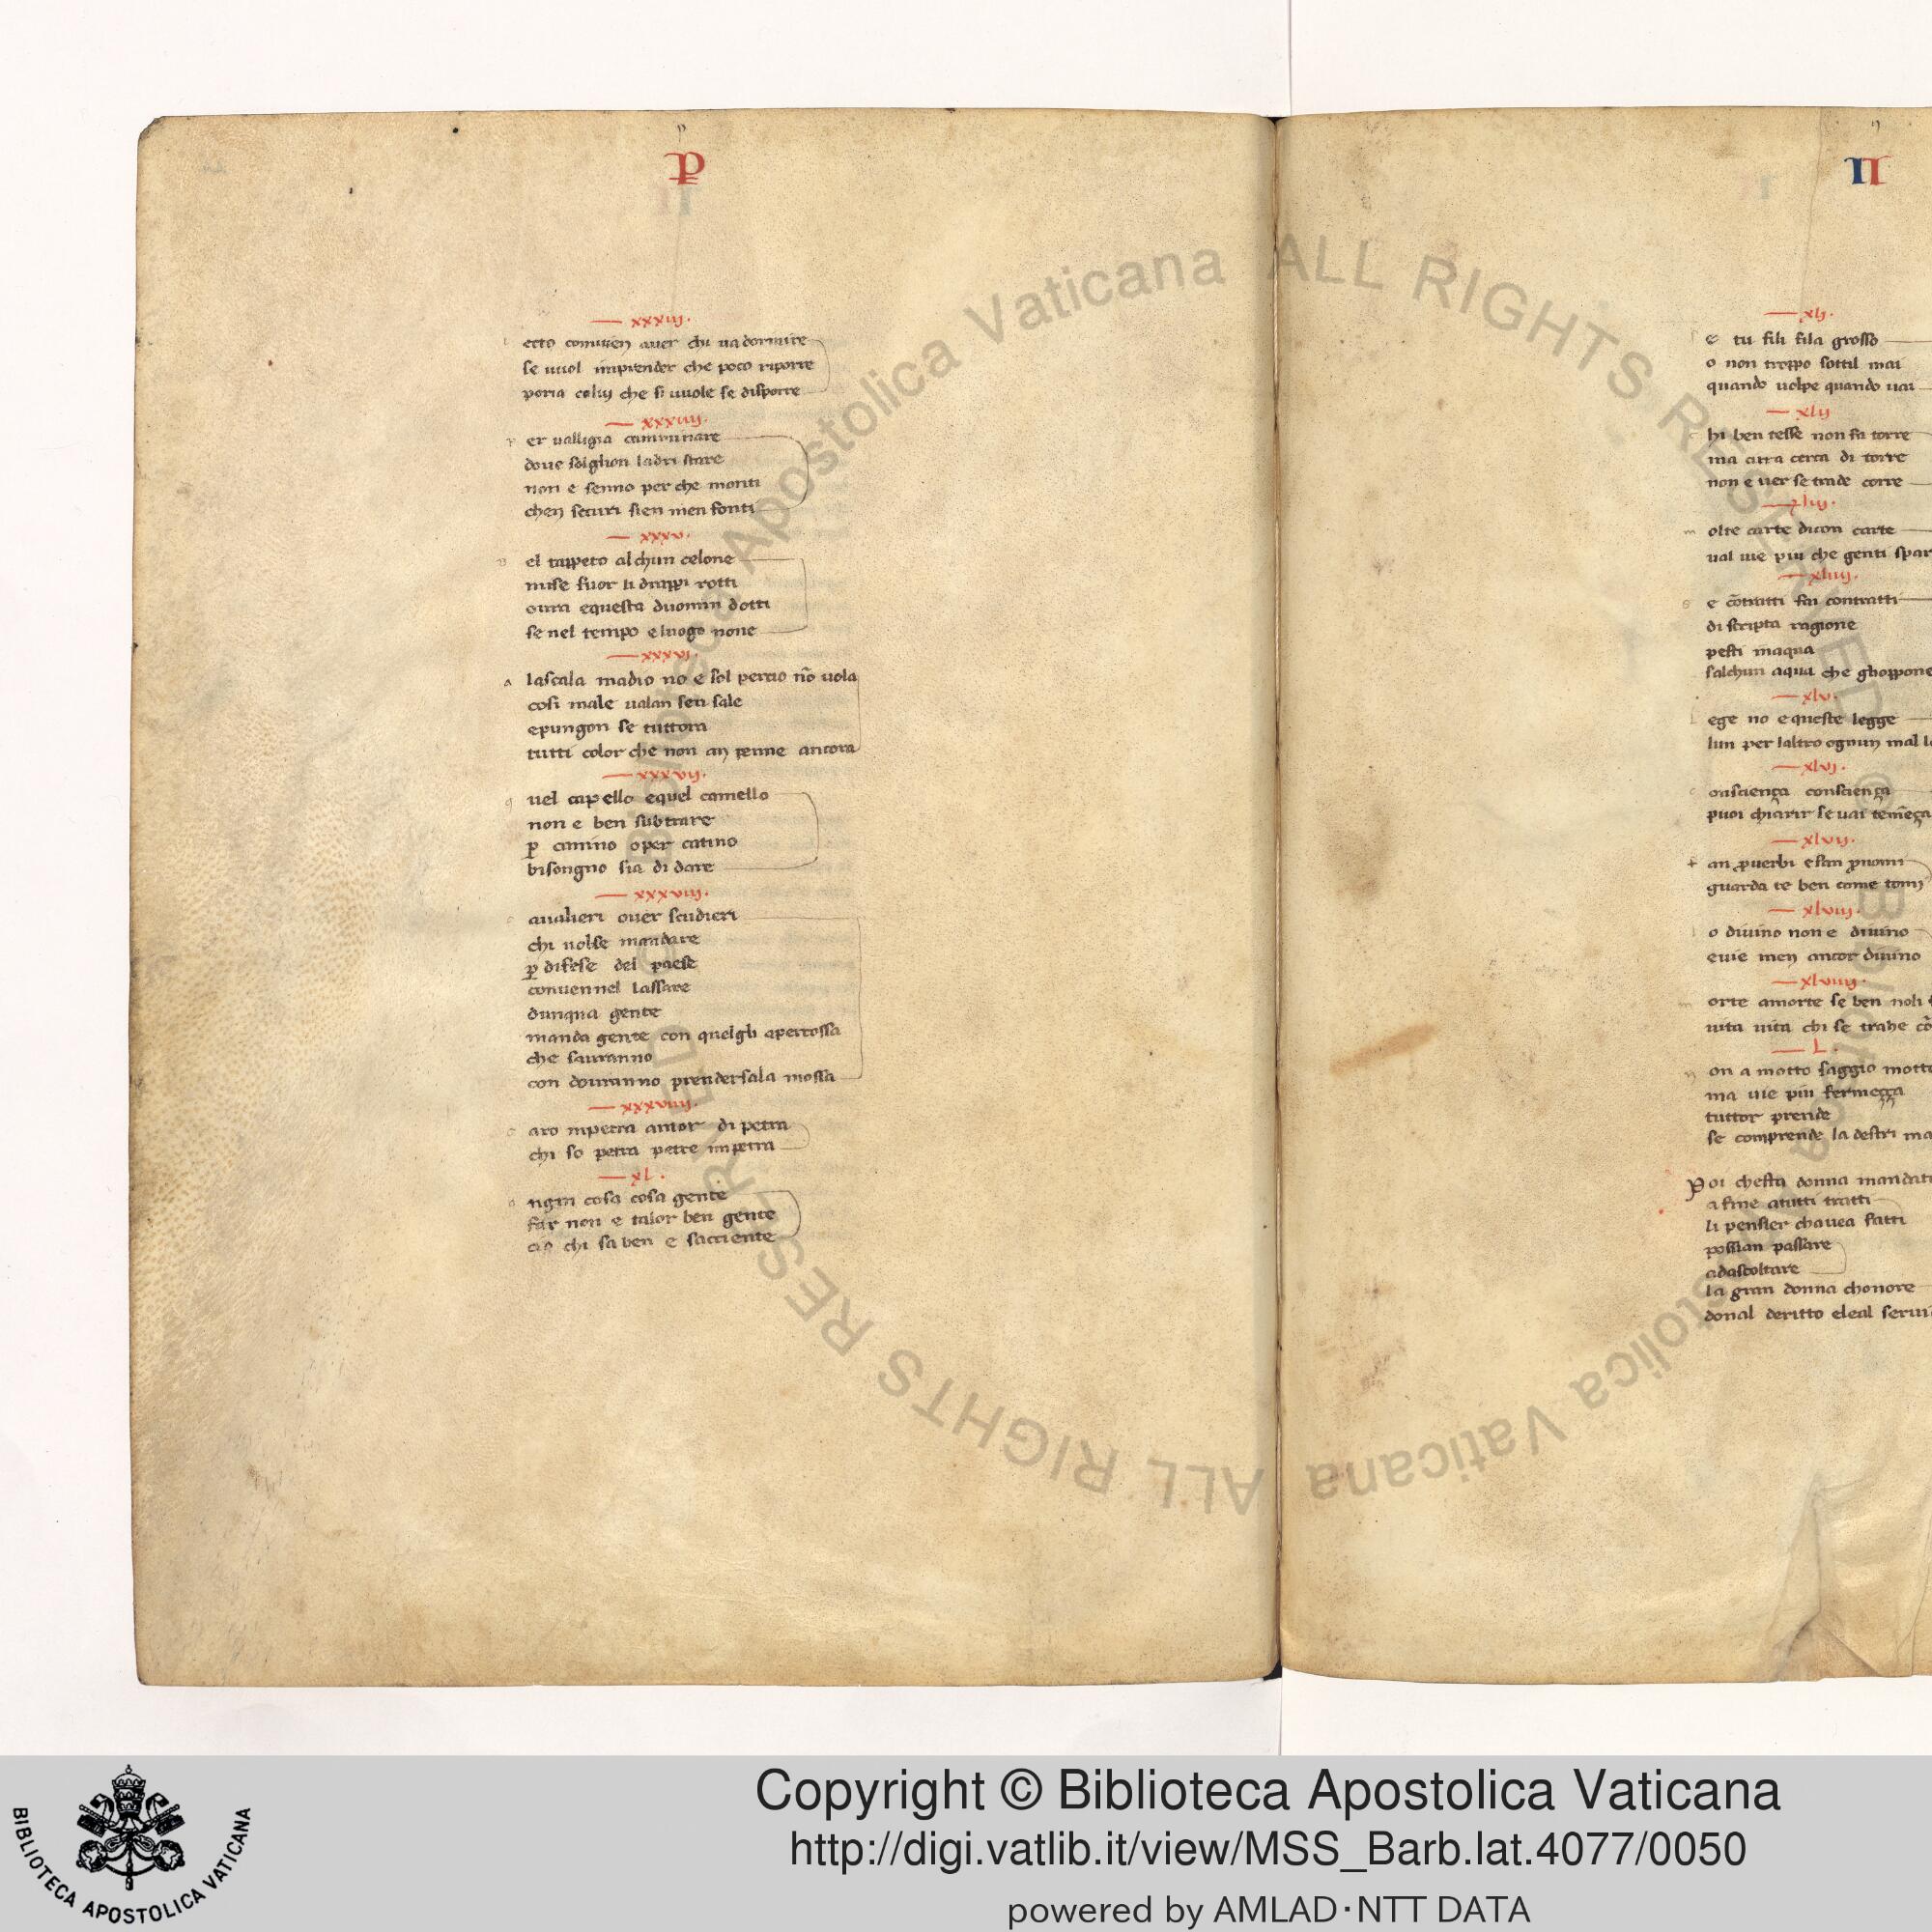 ꝑ
xxxiij.
certo convien aver chi va dormire
se vuol imprender che poco riporte
poria coluj che si vuole se disporre
xxxiiij.
per valligia camminare
dove solghon ladri stare
non e senno perche monti
chen securi sien men fonti
xxxv.
el tappeto alchun celone
mise fuor li drappi rotti
outa equesta duomin dotti
se nel tempo eluogo none
xxxvj.
a lascala madio no e sol percio nõ vola
cosi male valan sen sale
epungon se tuttora
tutti color che non an penne ancora
xxxvij.
quel capello equel camello
non e ben subtrare
ꝑ camino oper catino
bisongno sia di dare
xxxviij.
cavalieri over scudieri
chi volse mandare
ꝑ difese del paese
convennel lassare
dunqua gente
manda gente con quelgli apertossa
che sauranno
con douranno prendersala mossa
xxxviiij.
caro mpetra amor di petra
chi so petra petre impetra
xl.
ongni cosa cosa gente
far non e talor ben gente
cio chi sa ben e sacciente
II
xlj.
se tu fili fila grosso
o non troppo sottil mai
quando volpe quando vai
xlij
chi ben tesse non fa torre
ma cura cerca di torre
non e ver se trade corre
xliij.
molte carte dicon carte
val vie piu che genti spar
xliiij.
se cõtratti fai contratti
di scripta ragione
pesti maqua
salchun aqua che ghoppone
xlv.
lege no equeste legge
lun per laltro ognun mal l
xlvj.
consciença consciença
puoi chiarir se vai temença
xlvij.
tan ꝓverbi estan ꝓnomi
guarda te ben come tomi
xlviij.
lo divino non e divino
evie men ancor divino
xlviiij.
morte amorte se ben noli
vita vita chi se trahe cõ
L.
non a motto saggio motto
ma vie piu fermeçça
tuttor prende
se comprende la destri ma
Poi chesta donna mandati
a fine atutti tratti
li pensier chavea fatti
possian passare
adascoltare
la gran donna chonore
donal deritto eleal servi
Copyright © Biblioteca Apostolica Vaticana
http://digi.vatlib.it/view/MSS_Barb.lat.4077/0050
powered by AMLAD·NTT DATA
BIBLIOTECA APOSTOLICA VATICANA